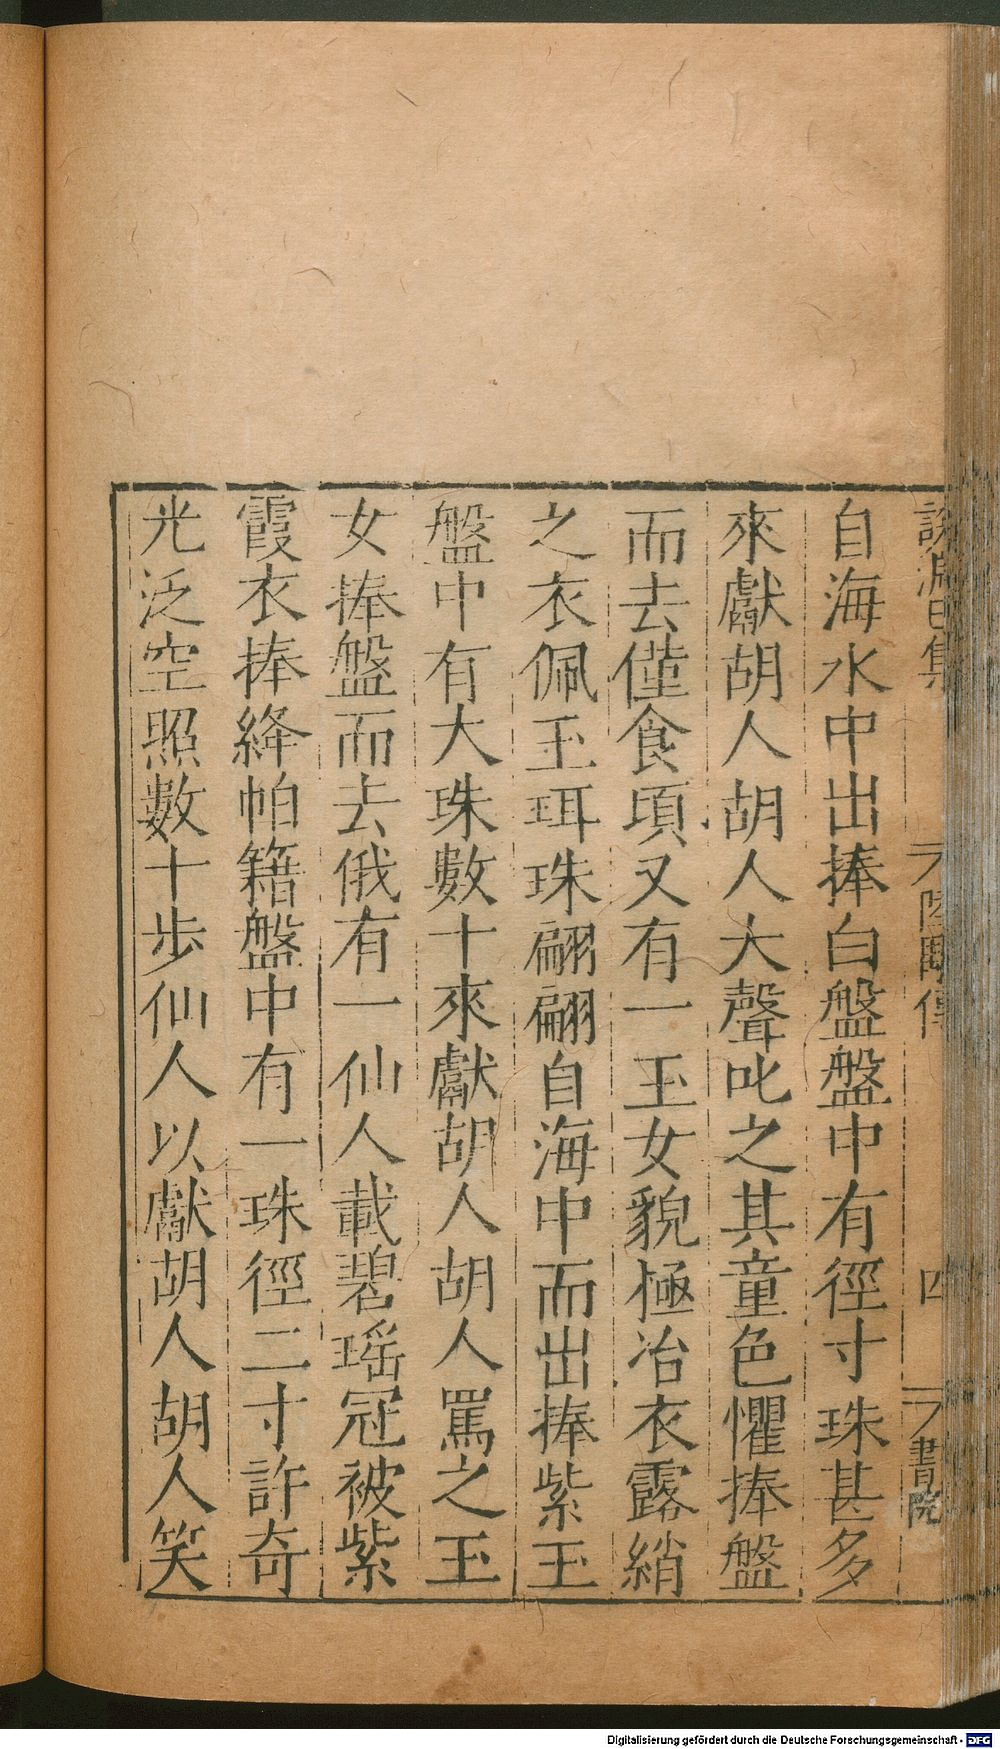 說淵己集 陸顒傳 四 書院
自海水中出捧白盤盤中有徑寸珠甚多
來獻胡人胡人大聲叱之其童色懼捧盤
而去僅食頃又有一玉女貌極冶衣露綃
之衣佩玉珥珠翩翩自海中而出捧紫玉
盤中有大珠數十來獻胡人胡人罵之玉
女捧盤而去俄有一仙人載碧瑶冠被紫
霞衣捧絳帕籍盤中有一珠徑二寸許奇
光泛空照數十步仙人以獻胡人胡人笑
Digitalisierung gefördert durch die Deutsche Forschungsgemeinschaft - DFG